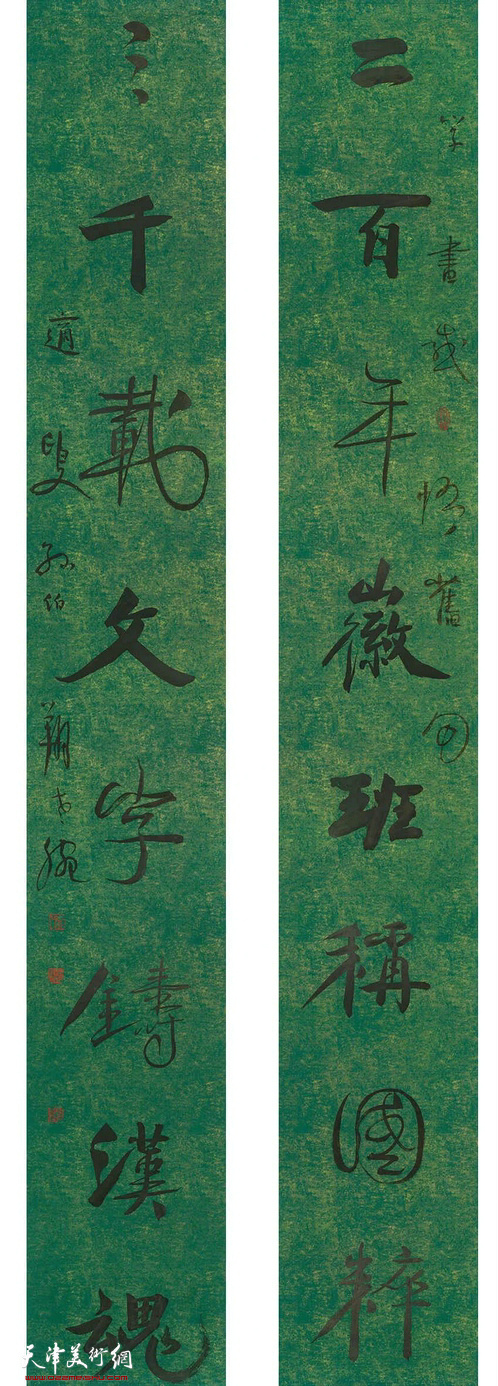 書感悟舊句
二百年徽班稱國粹
三千載文字鑄漢魂
適叟孫伯翔
天津美術網